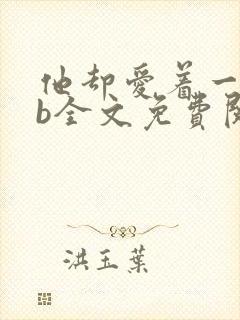 他却爱着一
b全文免費閱
洪玉葉